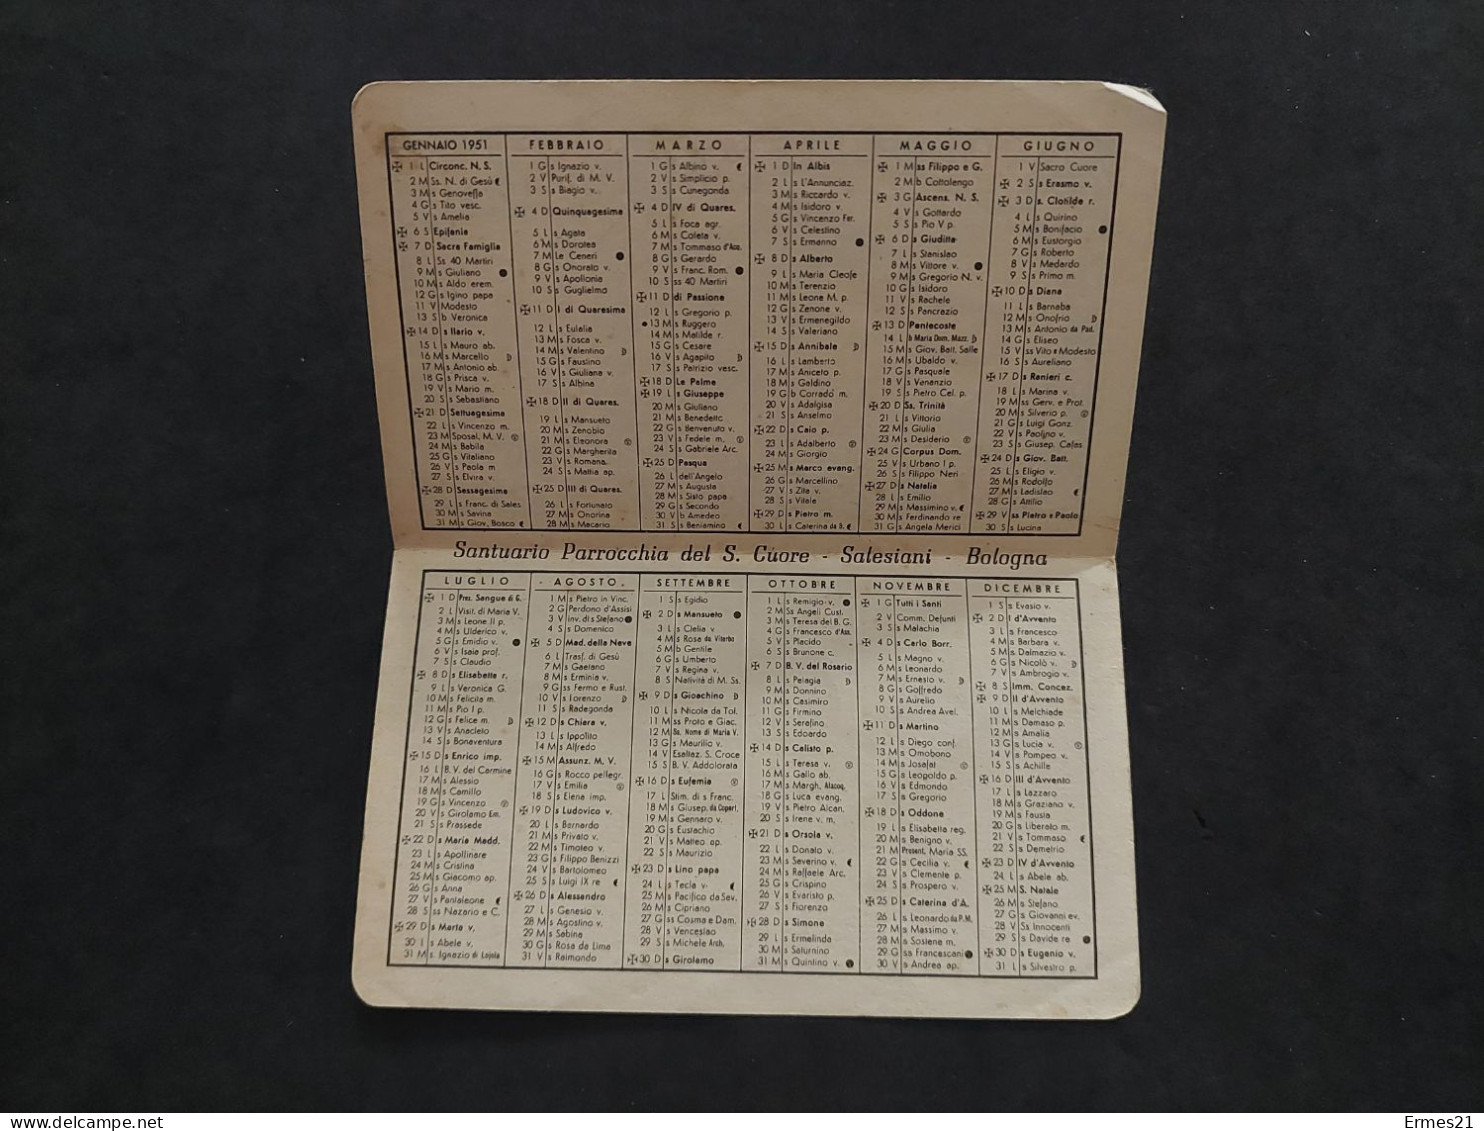 GENNAIO 1951
✠ 1 L Circonc. N. S.
2 M Ss. N. di Gesù
3 M s Genoveffa
4 G s Tito vesc.
5 V s Amelia
✠ 6 S Epifania
✠ 7 D Sacra Famiglia
8 L Ss 40 Martiri
9 M s Giuliano
10 M s Aldo erem.
12 G s Igino papa
11 V Modesto
13 S b Veronica
✠ 14 D s Ilario v.
15 L s Mauro ab.
16 M s Marcello
17 M s Antonio ab.
18 G s Prisca v.
19 V s Mario m.
20 S s Sebastiano
✠ 21 D Settuagesima
22 L s Vincenzo m.
23 M Sposal. M. V.
24 M s Babila
25 G s Vitaliano
26 V s Paola m
27 S s Elvira v.
✠ 28 D Sessagesima
29 L s Franc. di Sales
30 M s Savina
31 M s Giov. Bosco
FEBBRAIO
1 G s Ignazio v.
2 V Purif. di M. V.
3 S s Biagio v.
✠ 4 D Quinquagesima
5 L s Agata
6 M s Dorotea
7 M Le Ceneri
8 G s Onorato v.
9 V s Apollonia
10 S s Guglielmo
✠ 11 D I di Quaresima
12 L s Eulalia
13 M s Fosca v.
14 M s Valentino
15 G s Faustino
16 V s Giuliana v.
17 S s Albina
✠ 18 D II di Quares.
19 L s Mansueto
20 M s Zenobio
21 M s Eleonora
22 G s Margherita
23 V s Romana
24 S s Mattia ap.
✠ 25 D III di Quares.
26 L s Fortunato
27 M s Onorina
28 M s Macario
MARZO
1 G s Albino v.
2 V s Simplicio p.
3 S s Cunegonda
✠ 4 D IV di Quares.
5 L s Foca agr.
6 M s Coleta v.
7 M s Tommaso d'Aqu.
8 G s Gerardo
9 V s Franc. Rom.
10 S ss 40 Martiri
✠ 11 D di Passione
12 L s Gregorio p.
13 M s Ruggero
14 M s Matilde r.
15 G s Cesare
16 V s Agapito
17 S s Patrizio vesc.
✠ 18 D Le Palme
✠ 19 L s Giuseppe
20 M s Giuliano
21 M s Benedetto
22 G s Benvenuto v.
23 V s Fedele m.
24 S s Gabriele Arc.
✠ 25 D Pasqua
26 L dell'Angelo
27 M s Augusta
28 M s Sisto papa
29 G s Secondo
30 V b Amedeo
31 S s Beniamino
APRILE
✠ 1 D In Albis
2 L s L'Annunciaz.
3 M s Riccardo v.
4 M s Isidoro v.
5 G s Vincenzo Fer.
6 V s Celestino
7 S s Ermanno
✠ 8 D s Alberto
9 L s Maria Cleofe
10 M s Terenzio
11 M s Leone M. p.
12 G s Zenone v.
13 V s Ermenegildo
14 S s Valeriano
✠ 15 D s Annibale
16 L s Lamberto
17 M s Aniceto p.
18 M s Galdino
19 G b Corrado m.
20 V s Adalgisa
21 S s Anselmo
✠ 22 D s Caio p.
23 L s Adalberto
24 M s Giorgio
✠ 25 M s Marco evang.
26 G s Marcellino
27 V s Zita v.
28 S s Vitale
✠ 29 D s Pietro m.
30 L s Caterina da S.
MAGGIO
✠ 1 M ss Filippo e G.
2 M b Cottolengo
✠ 3 G Ascens. N. S.
4 V s Gottardo
5 S s Pio V p.
✠ 6 D s Giuditta
7 L s Stanislao
8 M s Vittore v.
9 M s Gregorio N. v.
10 G s Isidoro
11 V s Rachele
12 S s Pancrazio
✠ 13 D Pentecoste
14 L b Maria Dom. Mazz.
15 M s Giov. Batt. Salle
16 M s Ubaldo v.
17 G s Pasquale
18 V s Venanzio
19 S s Pietro Cel. p.
✠ 20 D Ss. Trinità
21 L s Vittorio
22 M s Giulia
23 M s Desiderio
✠ 24 G Corpus Dom.
25 V s Urbano I p.
26 S s Filippo Neri
✠ 27 D s Natalia
28 L s Emilio
29 M s Massimino v.
30 M s Ferdinando re
31 G s Angela Merici
GIUGNO
1 V Sacro Cuore
✠ 2 S s Erasmo v.
✠ 3 D s. Clotilde r.
4 L s Quirino
5 M s Bonifacio
6 M s Eustorgio
7 G s Roberto
8 V s Medardo
9 S s Primo m.
✠ 10 D s Diana
11 L s Barnaba
12 M s Onofrio
13 M s Antonio da Pad.
14 G s Eliseo
15 V ss Vito e Modesto
16 S s Aureliano
✠ 17 D s Ranieri c.
18 L s Marina v.
19 M ss Gerv. e Prot.
20 M s Silverio p.
21 G s Luigi Gonz.
22 V s Paolino v.
23 S s Giusep. Cafas
✠ 24 D s Giov. Batt.
25 L s Eligio v.
26 M s Rodolfo
27 M s Ladislao
28 G s Attilio
✠ 29 V ss Pietro e Paolo
30 S s Lucina
Santuario Parrocchia del S. Cuore - Salesiani - Bologna
LUGLIO
✠ 1 D Prez. Sangue di G.
2 L Visit. di Maria V.
3 M s Leone II p.
4 M s Ulderico v.
5 G s Emidio v.
6 V s Isaia prof.
7 S s Claudio
✠ 8 D s Elisabetta r.
9 L s Veronica G.
10 M s Felicita m.
11 M s Pio I p.
12 G s Felice m.
13 V s Anacleto
14 S s Bonaventura
✠ 15 D s Enrico imp.
16 L B. V. del Carmine
17 M s Alessio
18 M s Camillo
19 G s Vincenzo
20 V s Girolamo Em.
21 S s Prassede
✠ 22 D s Maria Madd.
23 L s Apollinare
24 M s Cristina
25 M s Giacomo ap.
26 G s Anna
27 V s Pantaleone
28 S ss Nazario e C.
✠ 29 D s Marta v.
30 L s Abele v.
31 M s. Ignazio di Lojola
AGOSTO
1 M s Pietro in Vinc.
2 G Perdono d'Assisi
3 V Inv. di s Stefano
4 S s Domenico
✠ 5 D Mad. della Neve
6 L Trasf. di Gesù
7 M s Gaetano
8 M s Erminia v.
9 G ss Fermo e Rust.
10 V s Lorenzo
11 S s Radegonda
✠ 12 D s Chiara v.
13 L s Ippolito
14 M s Alfredo
✠ 15 M Assunz. M. V.
16 G s Rocco pellegr.
17 V s Emilia
18 S s Elena imp.
✠ 19 D s Ludovico v.
20 L s Bernardo
21 M s Privato v.
22 M s Timoteo v.
23 G s Filippo Benizzi
24 V s Bartolomeo
25 S s Luigi IX re
✠ 26 D s Alessandro
27 L s Genesio v.
28 M s Agostino v.
29 M s Sabina
30 G s Rosa da Lima
31 V s Raimondo
SETTEMBRE
1 S s Egidio
✠ 2 D s Mansueto
3 L s Clelia v.
4 M s Rosa da Viterbo
5 M b Gentile
6 G s Umberto
7 V s Regina v.
8 S Natività di M. Ss.
✠ 9 D s Gioachino
10 L s Nicola da Tol.
11 M ss Proto e Giac.
12 M Ss. Nome di Maria V.
13 G s Maurilio v.
14 V Esaltaz. S. Croce
15 S B. V. Addolorata
✠ 16 D s Eufemia
17 L Stim. di s Franc.
18 M s Giusep. da Copert.
19 M s Gennaro v.
20 G s Eustachio
21 V s Matteo ap.
22 S s Maurizio
✠ 23 D s Lino papa
24 L s Tecla v.
25 M s Pacifico da Sev.
26 M s Cipriano
27 G ss Cosma e Dam.
28 V s Venceslao
29 S s Michele Arch.
✠ 30 D s Girolamo
OTTOBRE
1 L s Remigio v.
2 M Ss Angeli Cust.
3 M s Teresa del B. G.
4 G s Francesco d'Ass.
5 V s Placido
6 S s Brunone c.
✠ 7 D B. V. del Rosario
8 L s Pelagia
9 M s Donnino
10 M s Casimiro
11 G s Firmino
12 V s Serafino
13 S s Edoardo
✠ 14 D s Calisto p.
15 L s Teresa v.
16 M s Gallo ab.
17 M s Margh. Alacoq.
18 G s Luca evang.
19 V s Pietro Alcan.
20 S s Irene v. m.
✠ 21 D s Orsola v.
22 L s Donato v.
23 M s Severino v.
24 M s Raffaele Arc.
25 G s Crispino
26 V s Evaristo p.
27 S s Fiorenzo
✠ 28 D s Simone
29 L s Ermelinda
30 M s Saturnino
31 M s Quintino v.
NOVEMBRE
✠ 1 G Tutti i Santi
2 V Comm. Defunti
3 S s Malachia
✠ 4 D s Carlo Borr.
5 L s Magno v.
6 M s Leonardo
7 M s Ernesto v.
8 G s Goffredo
9 V s Aurelio
10 S s Andrea Avel.
✠ 11 D s Martino
12 L s Diego conf.
13 M s Omobono
14 M s Josafat
15 G s Leopoldo p.
16 V s Edmondo
17 S s Gregorio
✠ 18 D s Oddone
19 L s Elisabetta reg.
20 M s Benigno v.
21 M Present. Maria SS.
22 G s Cecilia v.
23 V s Clemente p.
24 S s Prospero v.
✠ 25 D s Caterina d'A.
26 L s Leonardo da P.M.
27 M s Massimo v.
28 M s Sostene m.
29 G ss Francescani
30 V s Andrea ap.
DICEMBRE
1 S s Evasio v.
✠ 2 D I d'Avvento
3 L s Francesco
4 M s Barbara v.
5 M s Dalmazio v.
6 G s Nicolò v.
7 V s Ambrogio v.
✠ 8 S Imm. Concez.
✠ 9 D II d'Avvento
10 L s Melchiade
11 M s Damaso p.
12 M s Amalia
13 G s Lucia v.
14 V s Pompeo v.
15 S s Achille
✠ 16 D III d'Avvento
17 L s Lazzaro
18 M s Graziano v.
19 M s Fausta
20 G s Liberato m.
21 V s Tommaso
22 S s Demetrio
✠ 23 D IV d'Avvento
24 L s Abele ab.
✠ 25 M S. Natale
26 M s Stefano
27 G s Giovanni ev.
28 V Ss Innocenti
29 S s Davide re
✠ 30 D s Eugenio v.
31 L s Silvestro p.
delcampe.net
Ermes21